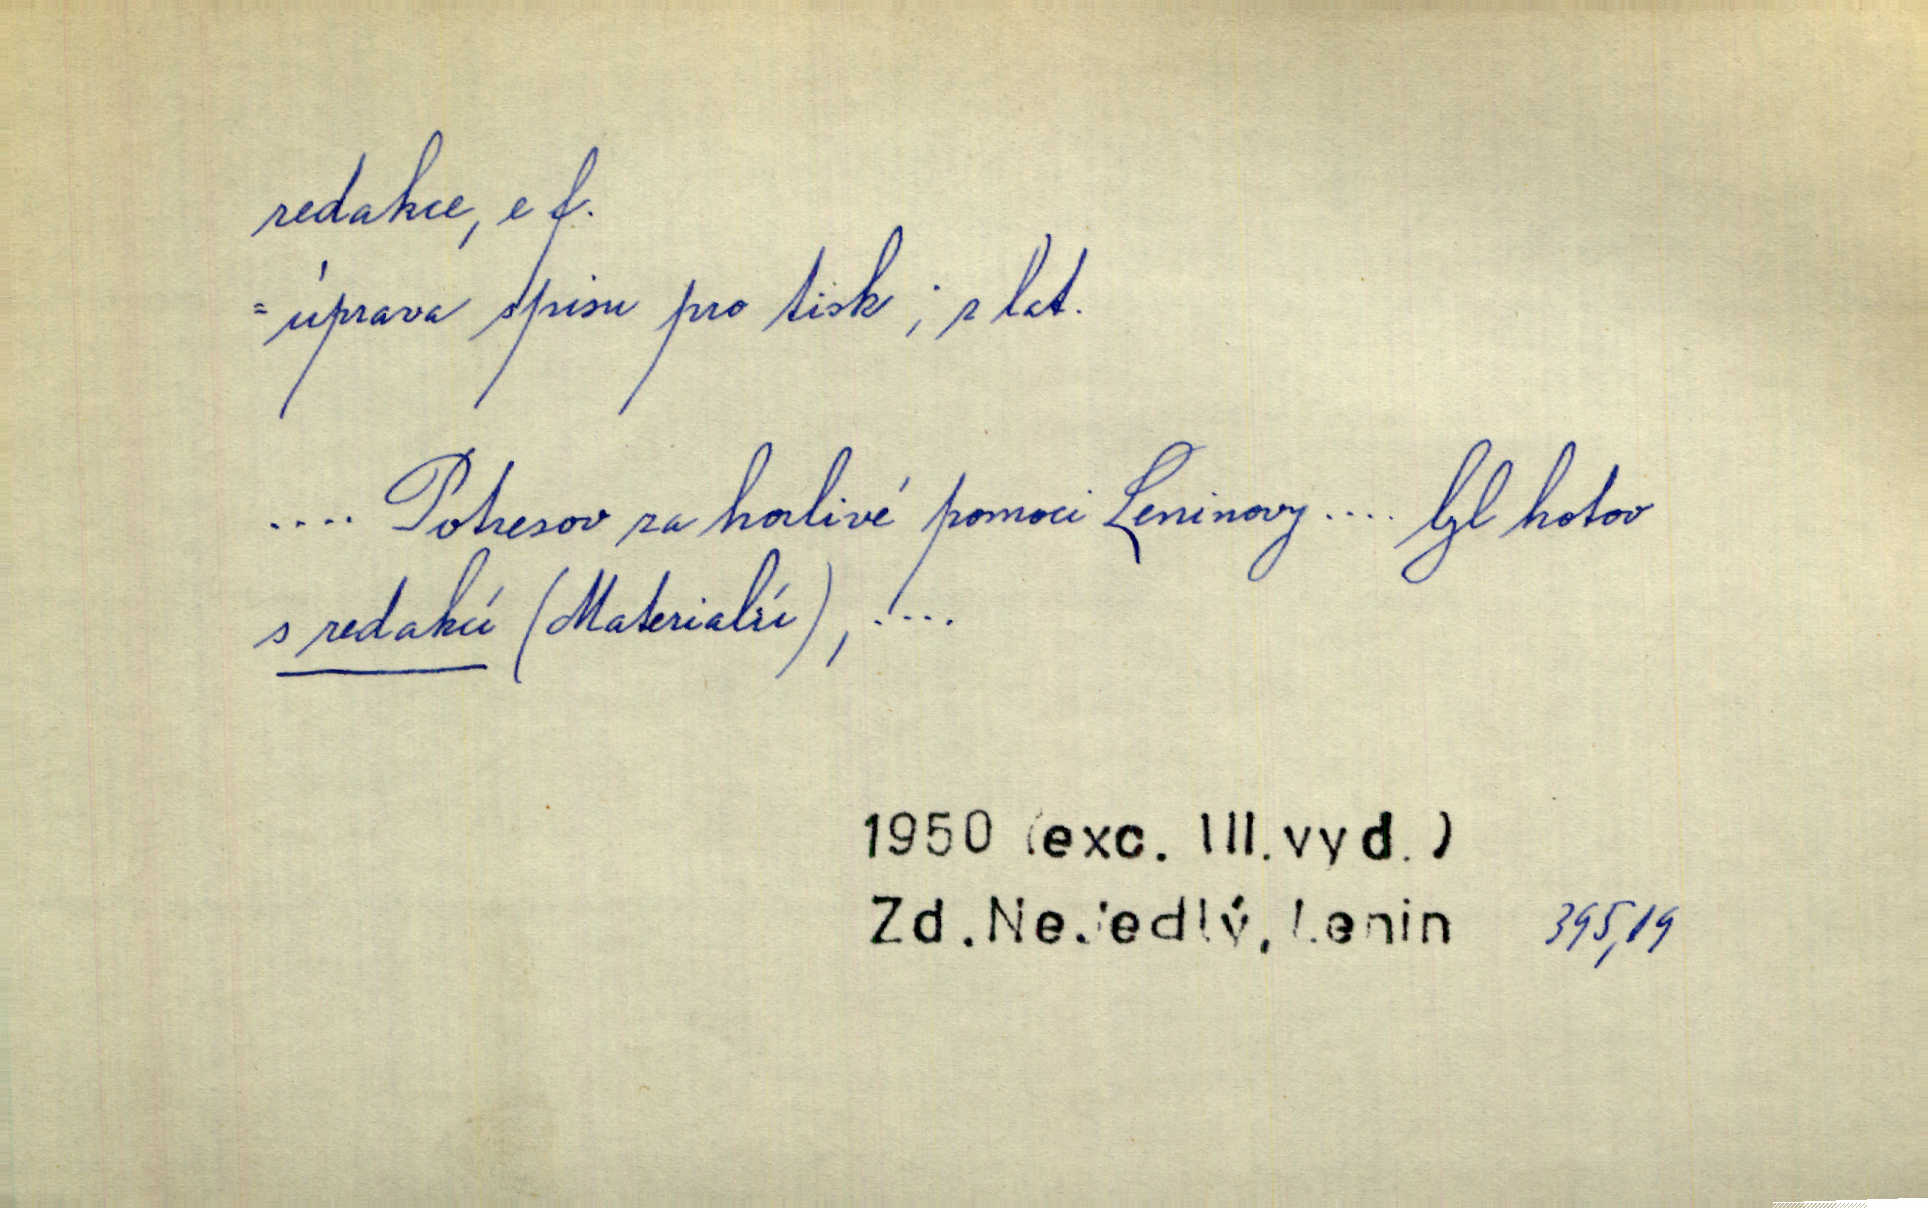 redakce, e f.
= úprava spisu pro tisk; z lat.
.... Potresov za horlivé pomoci Leninovy .... byl hotov
s redakcí (Materialů), ....
1950 (exc. III. vyd.)
Zd. Nejedlý, Lenin 395,19